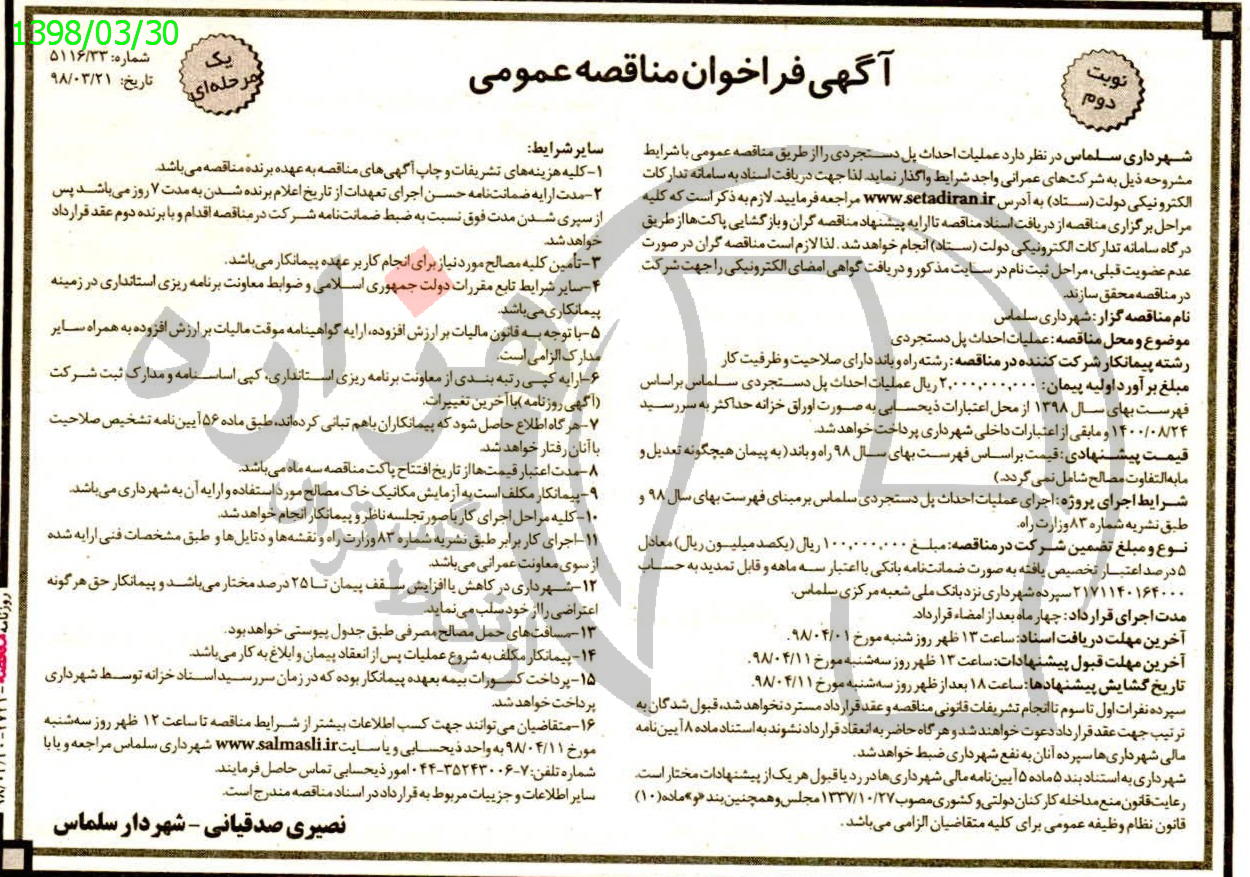 1398/03/30
شماره: ۵۱۱۶/۳۳
تاریخ: ۹۸/۰۳/۲۱
یک
مرحله‌ای
آگهی فراخوان مناقصه عمومی
نوبت
دوم
شهرداری سلماس در نظر دارد عملیات احداث پل دستجردی را از طریق مناقصه عمومی با شرایط
مشروحه ذیل به شرکت‌های عمرانی واجد شرایط واگذار نماید. لذا جهت دریافت اسناد به سامانه تدارکات
الکترونیکی دولت (ستاد) به آدرس www.setadiran.ir مراجعه فرمایید. لازم به ذکر است که کلیه
مراحل برگزاری مناقصه از دریافت اسناد مناقصه تا ارایه پیشنهاد مناقصه گران و بازگشایی پاکت‌ها از طریق
درگاه سامانه تدارکات الکترونیکی دولت (ستاد) انجام خواهد شد. لذا لازم است مناقصه گران در صورت
عدم عضویت قبلی، مراحل ثبت نام در سایت مذکور و دریافت گواهی امضای الکترونیکی را جهت شرکت
در مناقصه محقق سازند.
نام مناقصه گزار: شهرداری سلماس
موضوع و محل مناقصه: عملیات احداث پل دستجردی
رشته پیمانکار شرکت کننده در مناقصه: رشته راه و باند دارای صلاحیت و ظرفیت کار
مبلغ برآورد اولیه پیمان: ۲,۰۰۰,۰۰۰,۰۰۰ ریال عملیات احداث پل دستجردی سلماس براساس
فهرست بهای سال ۱۳۹۸ از محل اعتبارات ذیحسابی به صورت اوراق خزانه حداکثر به سررسید
۱۴۰۰/۰۸/۲۴ و مابقی از اعتبارات داخلی شهرداری پرداخت خواهد شد.
قیمت پیشنهادی: قیمت براساس فهرست بهای سال ۹۸ راه و باند (به پیمان هیچگونه تعدیل و
مابه‌التفاوت مصالح شامل نمی گردد.)
شرایط اجرای پروژه: اجرای عملیات احداث پل دستجردی سلماس بر مبنای فهرست بهای سال ۹۸ و
طبق نشریه شماره ۸۳ وزارت راه.
نوع و مبلغ تضمین شرکت در مناقصه: مبلغ ۱۰۰,۰۰۰,۰۰۰ ریال (یکصد میلیون ریال) معادل
۵ درصد اعتبار تخصیص یافته به صورت ضمانت‌نامه بانکی با اعتبار سه ماهه و قابل تمدید به حساب
۲۱۷۱۱۴۰۱۶۴۰۰۰ سپرده شهرداری نزد بانک ملی شعبه مرکزی سلماس.
مدت اجرای قرارداد: چهار ماه بعد از امضاء قرارداد.
آخرین مهلت دریافت اسناد: ساعت ۱۳ ظهر روز شنبه مورخ ۹۸/۰۴/۰۱.
آخرین مهلت قبول پیشنهادات: ساعت ۱۳ ظهر روز سه‌شنبه مورخ ۹۸/۰۴/۱۱.
تاریخ گشایش پیشنهادها: ساعت ۱۸ بعد از ظهر روز سه‌شنبه مورخ ۹۸/۰۴/۱۱.
سپرده نفرات اول تا سوم تا انجام تشریفات قانونی مناقصه و عقد قرارداد مسترد نخواهد شد، قبول شدگان به
ترتیب جهت عقد قرارداد دعوت خواهند شد و هرگاه حاضر به انعقاد قرارداد نشوند به استناد ماده ۸ آیین نامه
مالی شهرداری‌ها سپرده آنان به نفع شهرداری ضبط خواهد شد.
شهرداری به استناد بند ۵ ماده ۵ آیین‌نامه مالی شهرداری‌ها در رد یا قبول هر یک از پیشنهادات مختار است.
رعایت قانون منع مداخله کارکنان دولتی و کشوری مصوب ۱۳۳۷/۱۰/۲۷ مجلس و همچنین بند «و» ماده (۱۰)
قانون نظام وظیفه عمومی برای کلیه متقاضیان الزامی می‌باشد.
سایر شرایط:
۱-کلیه هزینه‌های تشریفات و چاپ آگهی های مناقصه به عهده برنده مناقصه می‌باشد.
۲-مدت ارایه ضمانت‌نامه حسن اجرای تعهدات از تاریخ اعلام برنده شدن به مدت ۷ روز می‌باشد پس
از سپری شدن مدت فوق نسبت به ضبط ضمانت‌نامه شرکت در مناقصه اقدام و با برنده دوم عقد قرارداد
خواهد شد.
۳-تأمین کلیه مصالح مورد نیاز برای انجام کار بر عهده پیمانکار می‌باشد.
۴-سایر شرایط تابع مقررات دولت جمهوری اسلامی و ضوابط معاونت برنامه ریزی استانداری در زمینه
پیمانکاری می‌باشد.
۵-با توجه به قانون مالیات بر ارزش افزوده، ارایه گواهینامه موقت مالیات بر ارزش افزوده به همراه سایر
مدارک الزامی است.
۶-ارایه کپی رتبه بندی از معاونت برنامه ریزی استانداری، کپی اساسنامه و مدارک ثبت شرکت
(آگهی روزنامه) با آخرین تغییرات.
۷-هرگاه اطلاع حاصل شود که پیمانکاران باهم تبانی کرده‌اند، طبق ماده ۵۶ آیین‌نامه تشخیص صلاحیت
با آنان رفتار خواهد شد.
۸-مدت اعتبار قیمت‌ها از تاریخ افتتاح پاکت مناقصه سه ماه می‌باشد.
۹-پیمانکار مکلف است به آزمایش مکانیک خاک مصالح مورد استفاده و ارایه آن به شهرداری می‌باشد.
۱۰-کلیه مراحل اجرای کار با صورتجلسه ناظر و پیمانکار انجام خواهد شد.
۱۱-اجرای کار برابر طبق نشریه شماره ۸۳ وزارت راه و نقشه‌ها و دتایل‌ها و طبق مشخصات فنی ارایه شده
از سوی معاونت عمرانی می‌باشد.
۱۲-شهرداری در کاهش یا افزایش سقف پیمان تا ۲۵ درصد مختار می‌باشد و پیمانکار حق هرگونه
اعتراضی را از خود سلب می‌نماید.
۱۳-مسافت‌های حمل مصالح مصرفی طبق جدول پیوستی خواهد بود.
۱۴-پیمانکار مکلف به شروع عملیات پس از انعقاد پیمان و ابلاغ به کار می‌باشد.
۱۵-پرداخت کسورات بیمه بعهده پیمانکار بوده که در زمان سررسید اسناد خزانه توسط شهرداری
پرداخت خواهد شد.
۱۶-متقاضیان می توانند جهت کسب اطلاعات بیشتر از شرایط مناقصه تا ساعت ۱۲ ظهر روز سه‌شنبه
مورخ ۹۸/۰۴/۱۱ به واحد ذیحسابی و یا سایت www.salmasli.ir شهرداری سلماس مراجعه و یا با
شماره تلفن: ۷-۰۴۴-۳۵۲۴۳۰۰۶ امور ذیحسابی تماس حاصل فرمایند.
سایر اطلاعات و جزییات مربوط به قرارداد در اسناد مناقصه مندرج است.
نصیری صدقیانی - شهردار سلماس
هزاره